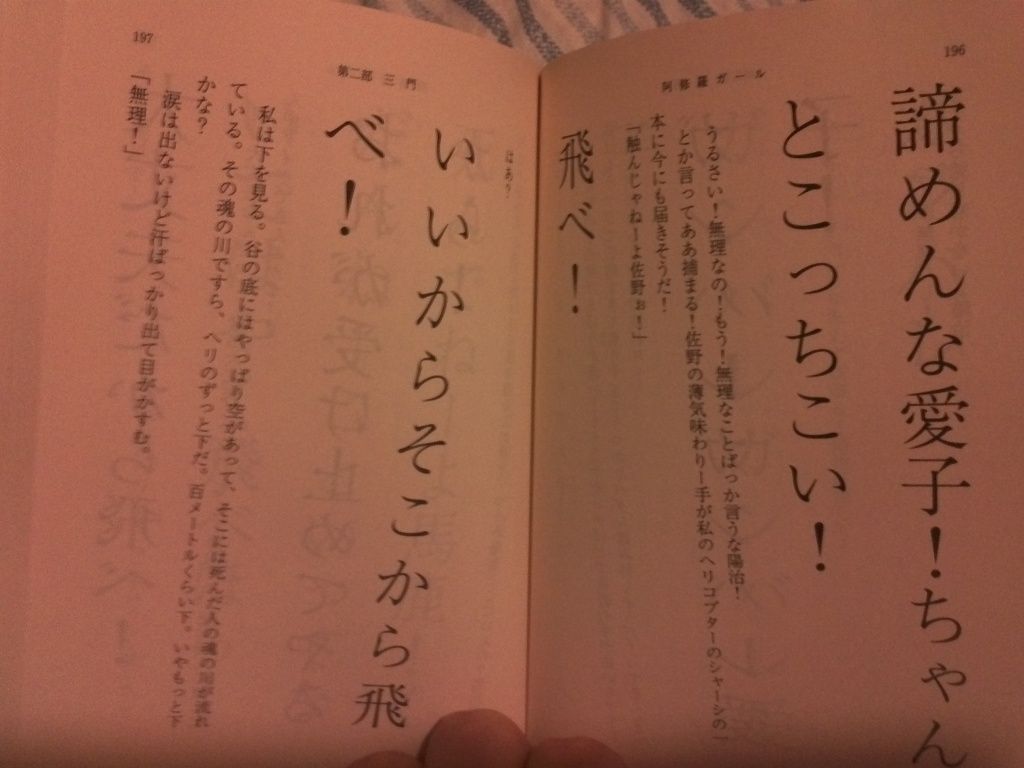 196
阿修羅ガール
諦めんな愛子!ちゃん
とこっちこい!
うるさい!無理なの!もう!無理なことばっか言うな陽治!
とか言ってああ捕まる!佐野の薄気味わりー手が私のヘリコプターのシャーシの一
本に今にも届きそうだ!
「触んじゃねーよ佐野ぉ!」
飛べ!
197
第二部 三門
はあ?
いいからそこから飛
べ!
私は下を見る。谷の底にはやっぱり空があって、そこには死んだ人の魂の川が流れ
ている。その魂の川ですら、ヘリのずっと下だ。百メートルくらい下。いやもっと下
かな?
涙は出ないけど汗ばっかり出て目がかすむ。
「無理!」